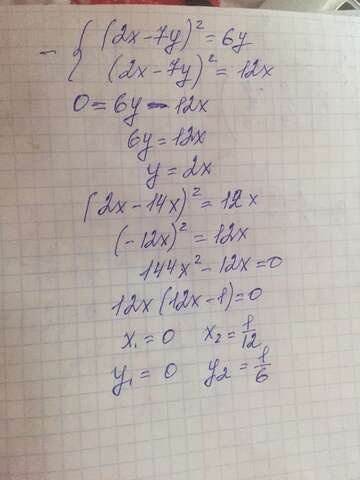 - { (2x-7y)² = 6y
(2x-7y)² = 12x
0 = 6y - 12x
6y = 12x
y = 2x
(2x - 14x)² = 12x
(-12x)² = 12x
144x² - 12x = 0
12x (12x - 1) = 0
x₁ = 0 x₂ = 1/12
y₁ = 0 y₂ = 1/6